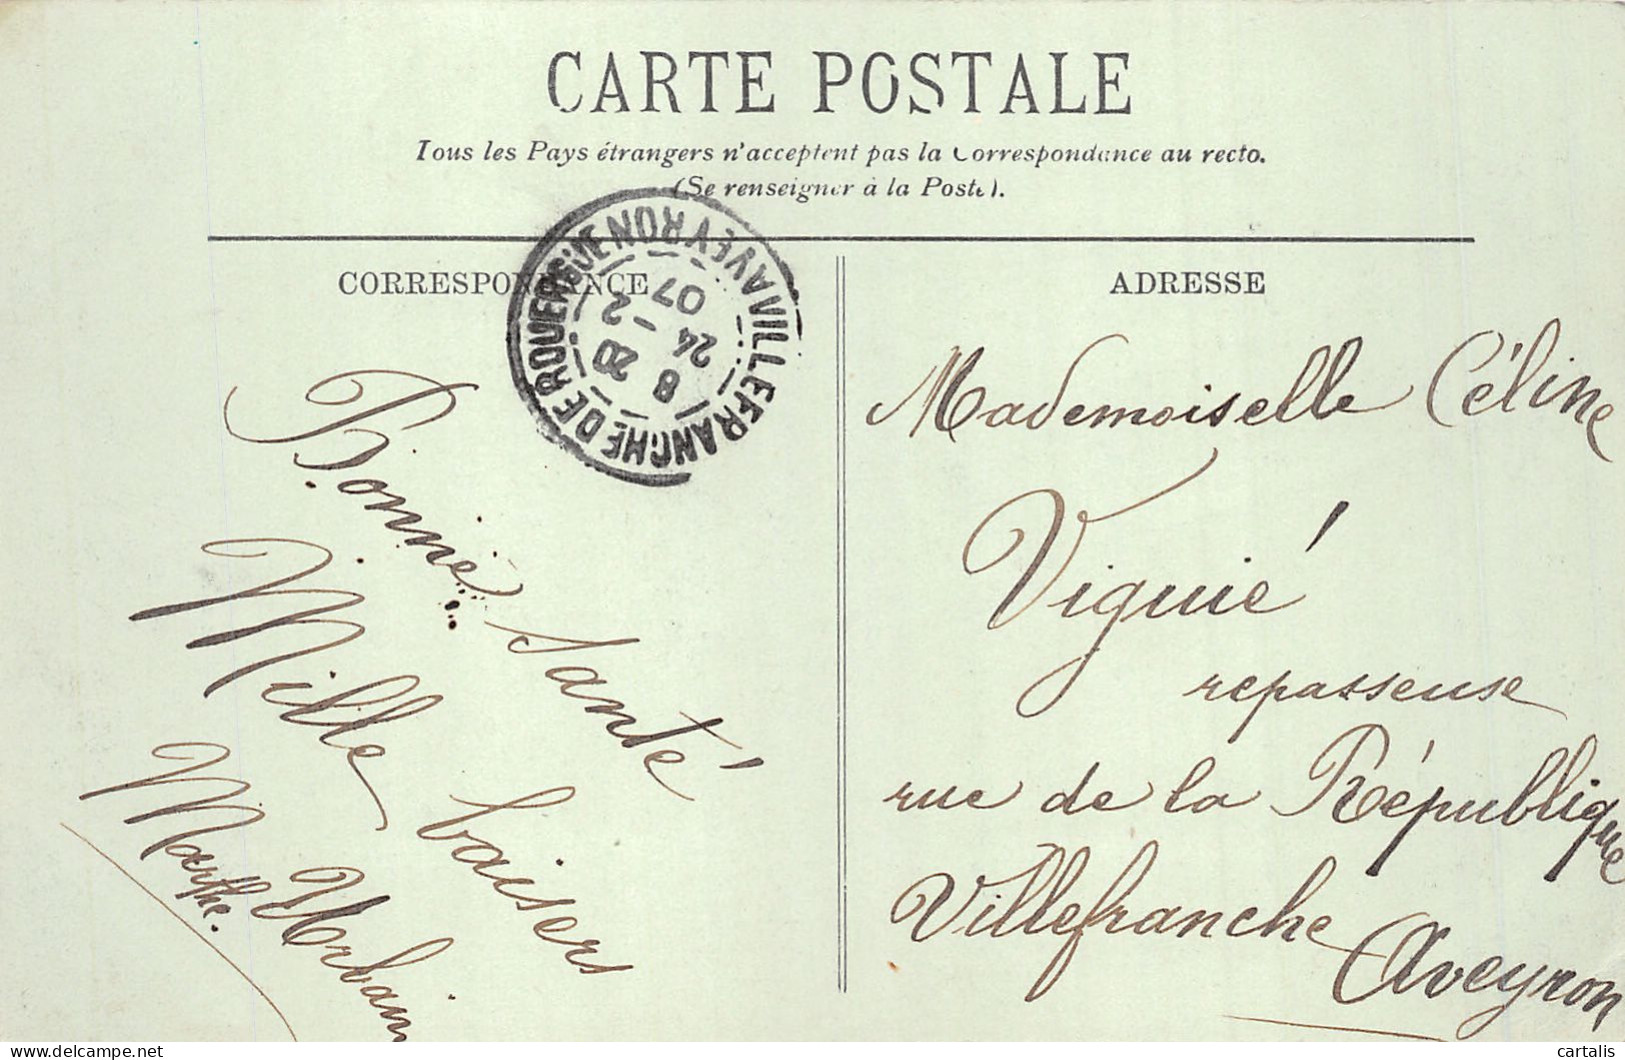 CARTE POSTALE
Tous les Pays étrangers n'acceptent pas la Correspondance au recto.
(Se renseigner à la Poste).
CORRESPONDANCE
VILLEFRANCHE DE ROUERGUE
AVEYRON
8 20
24 - 2
07
Bonne Santé
Mille baisers
Marthe Urbain
ADRESSE
Mademoiselle Céline
Viguié
repasseuse
rue de la République
Villefranche
Aveyron
delcampe.net
cartalis